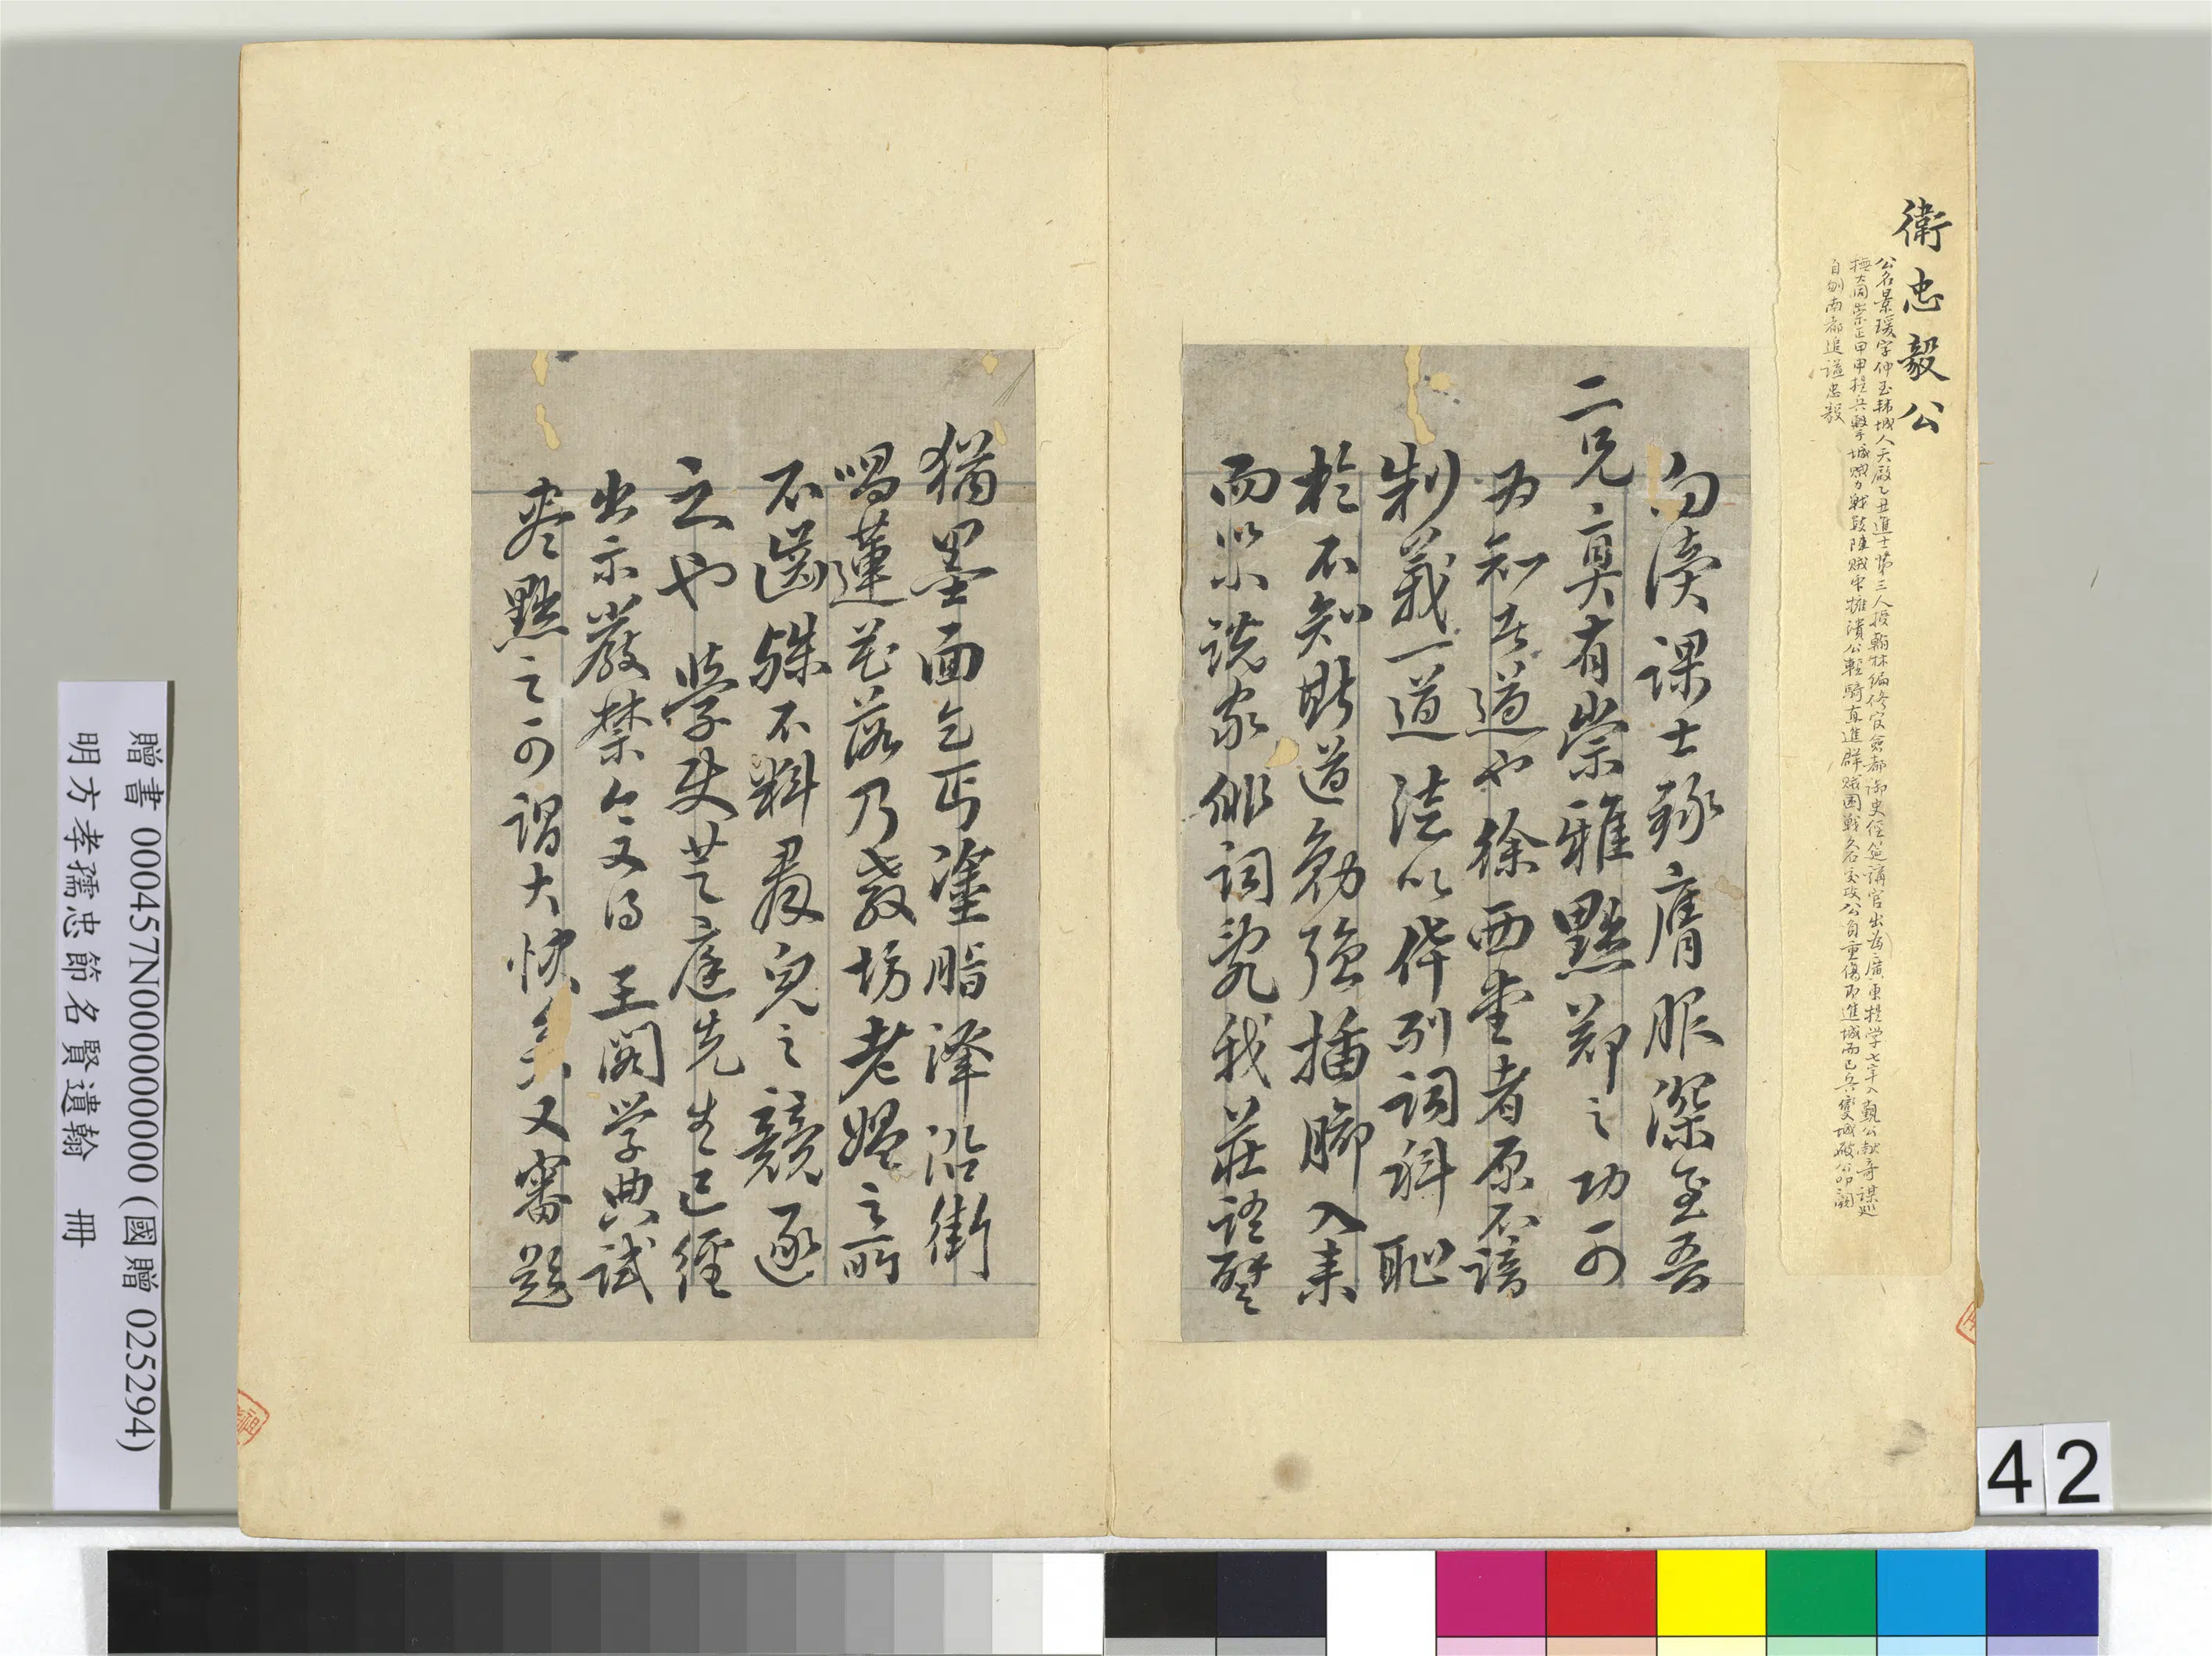 衛忠毅公
公名景瑗字仲玉韓城人天啟乙丑進士第三人授翰林編修官僉都御史經筵講官出為廣東提學七年入覲公献奇謀巡
撫大同崇正甲申提兵擊城賊力戰鼓陣賊中擁潰公輕騎直進群賊困戰久合交攻公負重傷即進城而已兵變城破公叩闕
自刎南都追謚忠毅
向讀課士錄膺服深至吾
二兄真有崇雅黜鄭之功可
為知者道也徐西雲者原不諳
制義一道法以俳列詞科恥
於不知斯道勉強插腳入來
而以小說家俳詞亂我莊語譬
猶墨面乞丐塗脂澤沿街
唱蓮花落乃教坊老嫗之所
不齒殊不料羣兒之競逐
之也學使芝庭先生已經
出示嚴禁今又得 王閣學典試
奏黜之可謂大快矣又審題
贈書 000457N000000000 (國贈 025294)
明方孝孺忠節名賢遺翰 冊
42